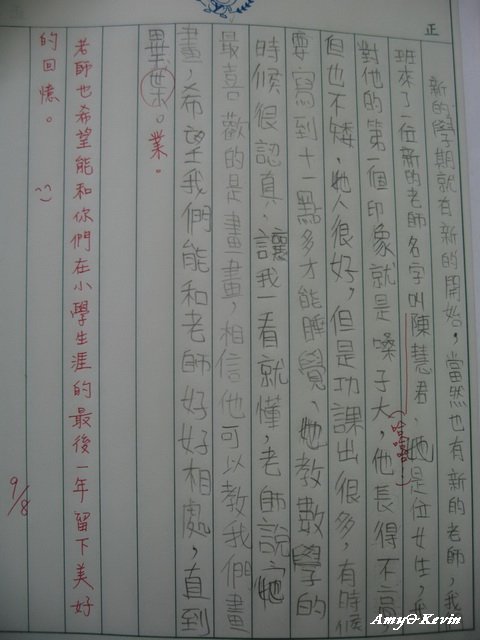 正
新的學期就有新的開始，當然也有新的老師，我
班來了一位新的老師名字叫陳慧君 她是位女生，我
對他的第一個印象就是嗓子大，他長得不高
(哈嘻嘻~)
但也不矮、她人很好，但是功課出很多，有時候
要寫到十一點多才能睡覺、她教數學的
時候很認真，讓我一看就懂，老師說她
最喜歡的是畫畫，相信他可以教我們畫
畫，希望我們能和老師好好相處，直到
畢業。業。
老師也希望能和你們在小學生涯的最後一年留下美好
的回憶。 :)
9/8
Amy∂Kevin